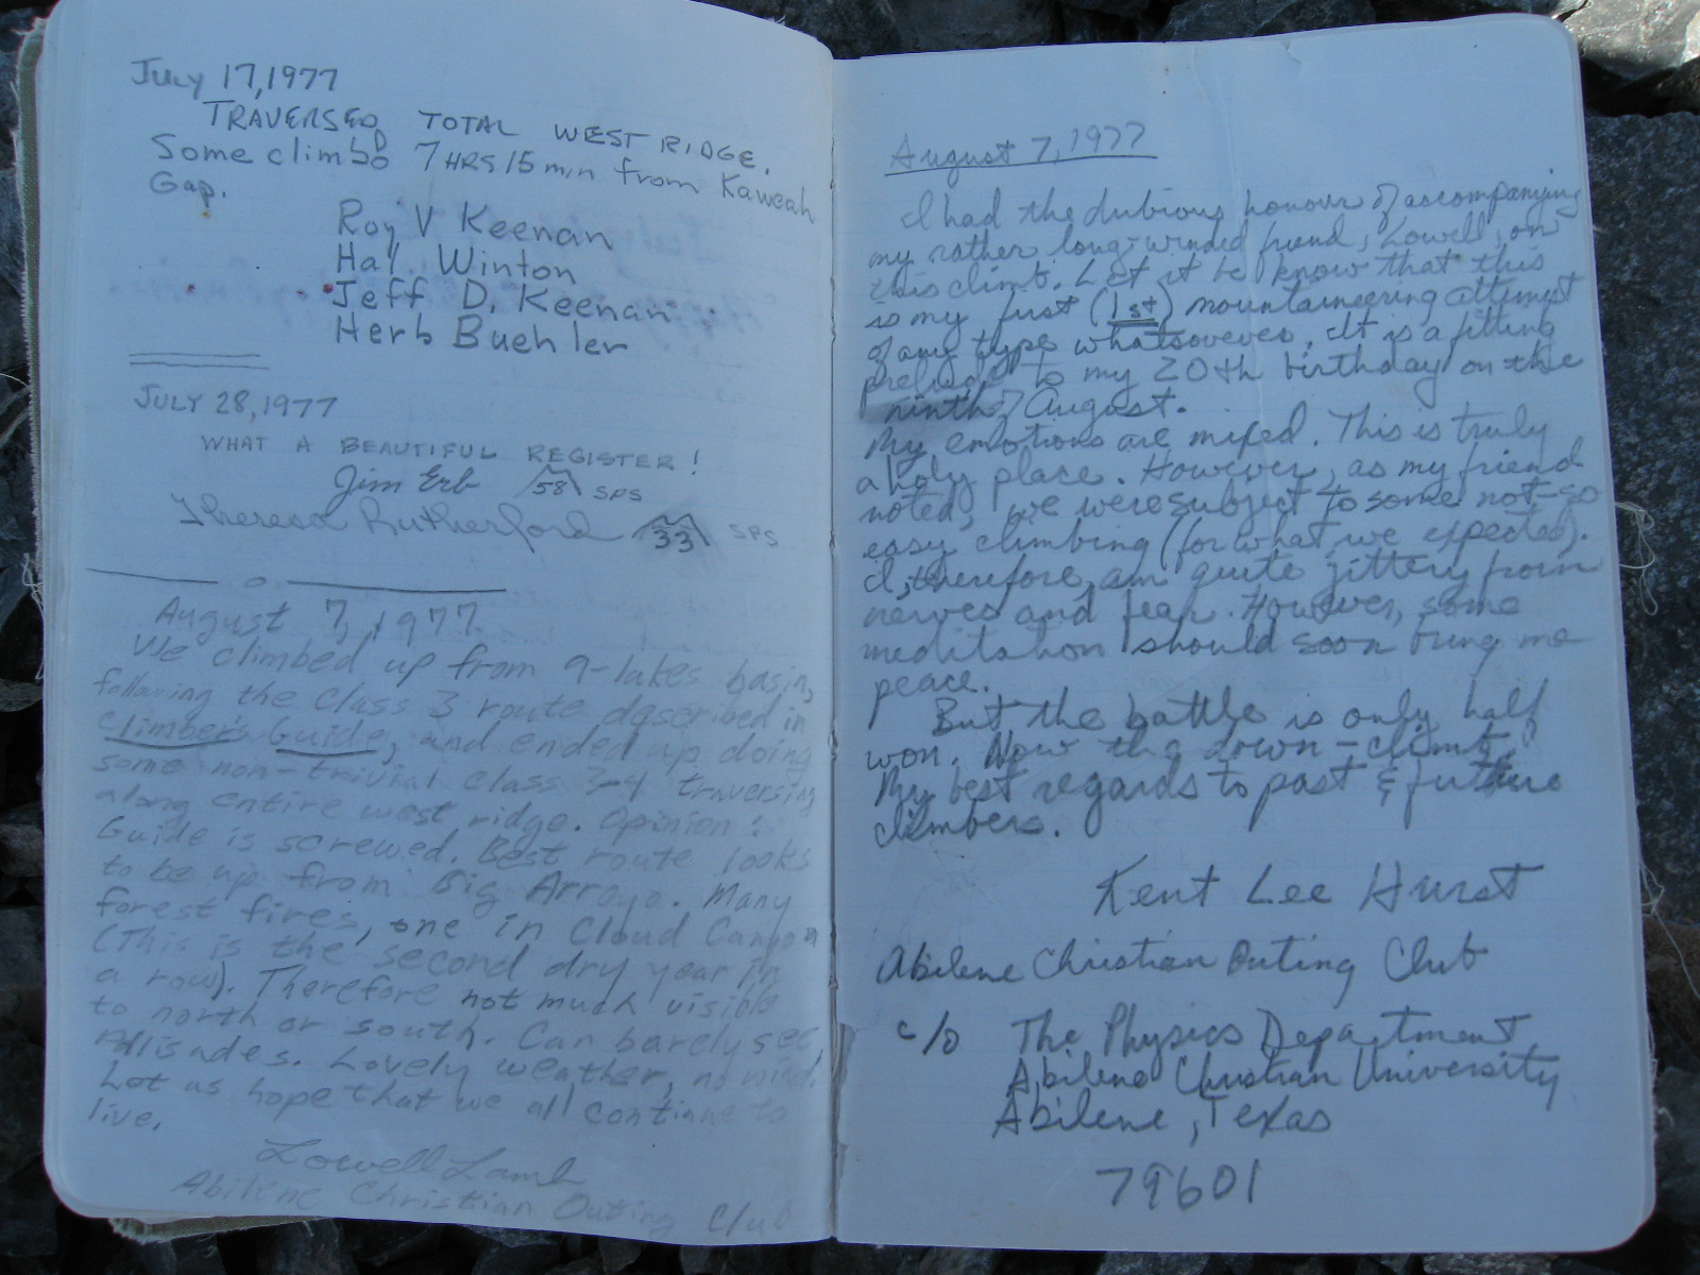 July 17, 1977
TRAVERSED TOTAL WEST RIDGE.
Some climb 7 HRS 15 min from Kaweah
Gap.
Roy V Keenan
Hal Winton
Jeff D. Keenan
Herb Buehler
JULY 28, 1977
WHAT A BEAUTIFUL REGISTER!
Jim Erb 58 SPS
Theresa Rutherford 33 SPS
August 7, 1977
We climbed up from 9-lakes basin,
following the Class 3 route described in
Climber's Guide, and ended up doing
some non-trivial class 3-4 traversing
along entire west ridge. Opinion:
Guide is screwed. Best route looks
to be up from Big Arroyo. Many
forest fires, one in Cloud Canyon
(This is the second dry year in
a row). Therefore not much visible
to north or south. Can barely see
Palisades. Lovely weather, no wind.
Let us hope that we all continue to
live.
Lowell Lamb
Abilene Christian Outing Club
August 7, 1977
I had the dubious honour of accompanying
my rather long-winded friend, Lowell, on
this climb. Let it be know that this
is my first (1st) mountaineering attempt
of any type whatsoever. It is a fitting
prelude to my 20th birthday on the
ninth of August.
My emotions are mixed. This is truly
a holy place. However, as my friend
noted, we were subject to some not-so
easy climbing (for what we expected).
I, therefore, am quite jittery from
nerves and fear. However, some
meditation should soon bring me
peace.
But the battle is only half
won. Now the down-climb.
My best regards to past & future
climbers.
Kent Lee Hurst
Abilene Christian Outing Club
c/o The Physics Department
Abilene Christian University
Abilene, Texas
79601